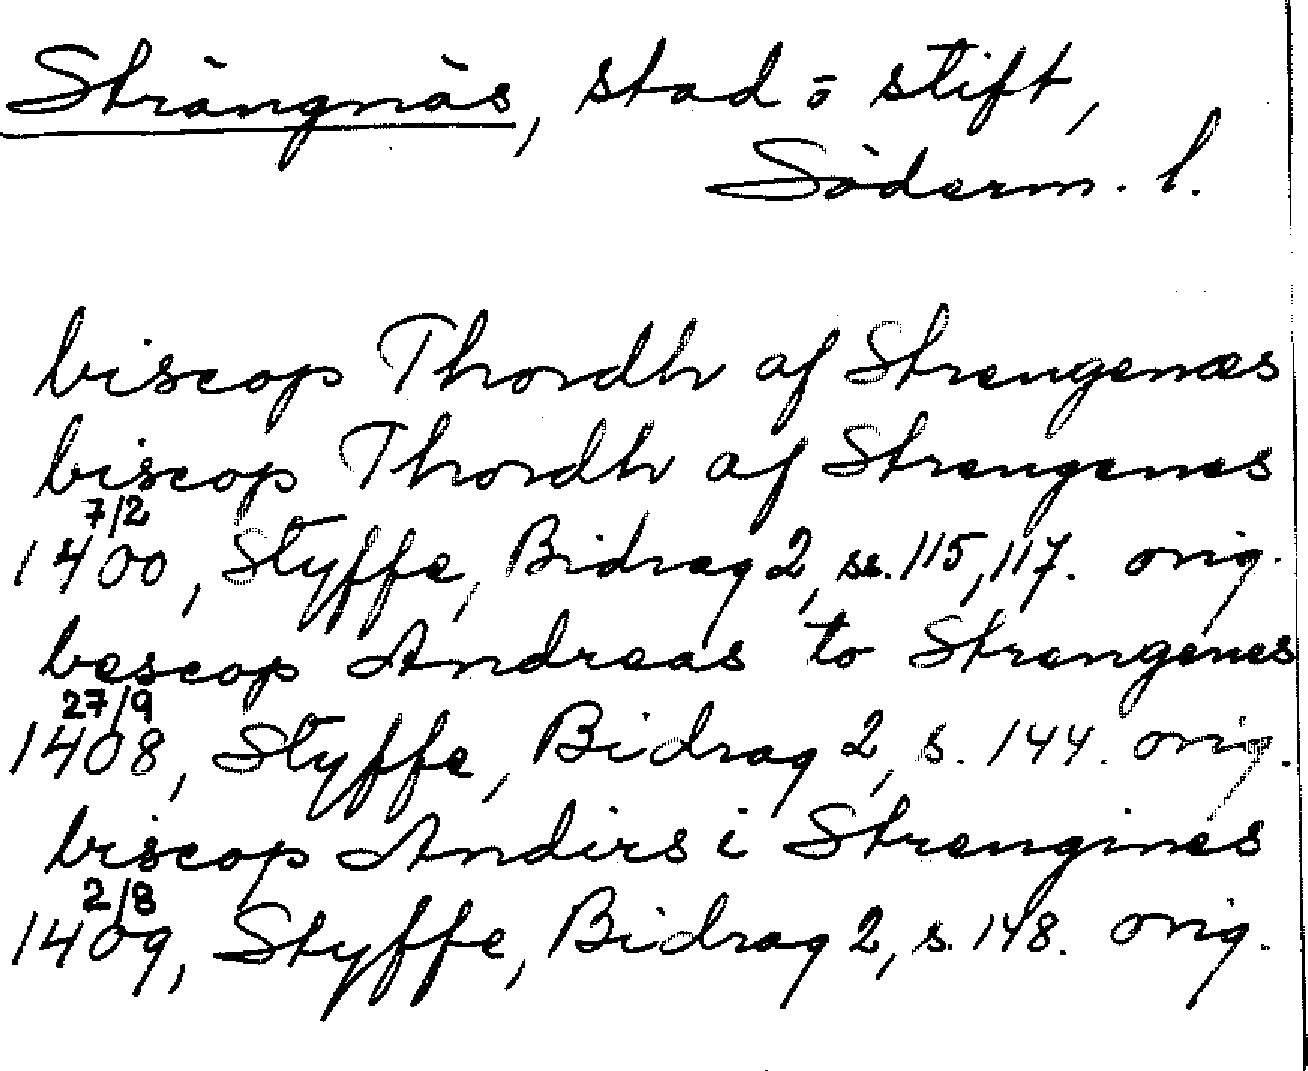 Strängnäs, stad o stift,
Söderm. l.
biscop Thordh af Strengenæs
biscop Thordh af Strengenes
7/2
1400, Styffe, Bidrag 2, ss. 115, 117. orig.
bescop Andreas to Strengenes
27/9
1408, Styffe, Bidrag 2, s. 144. orig.
biscop Andirs i Strengines
2/8
1409, Styffe, Bidrag 2, s. 148. orig.